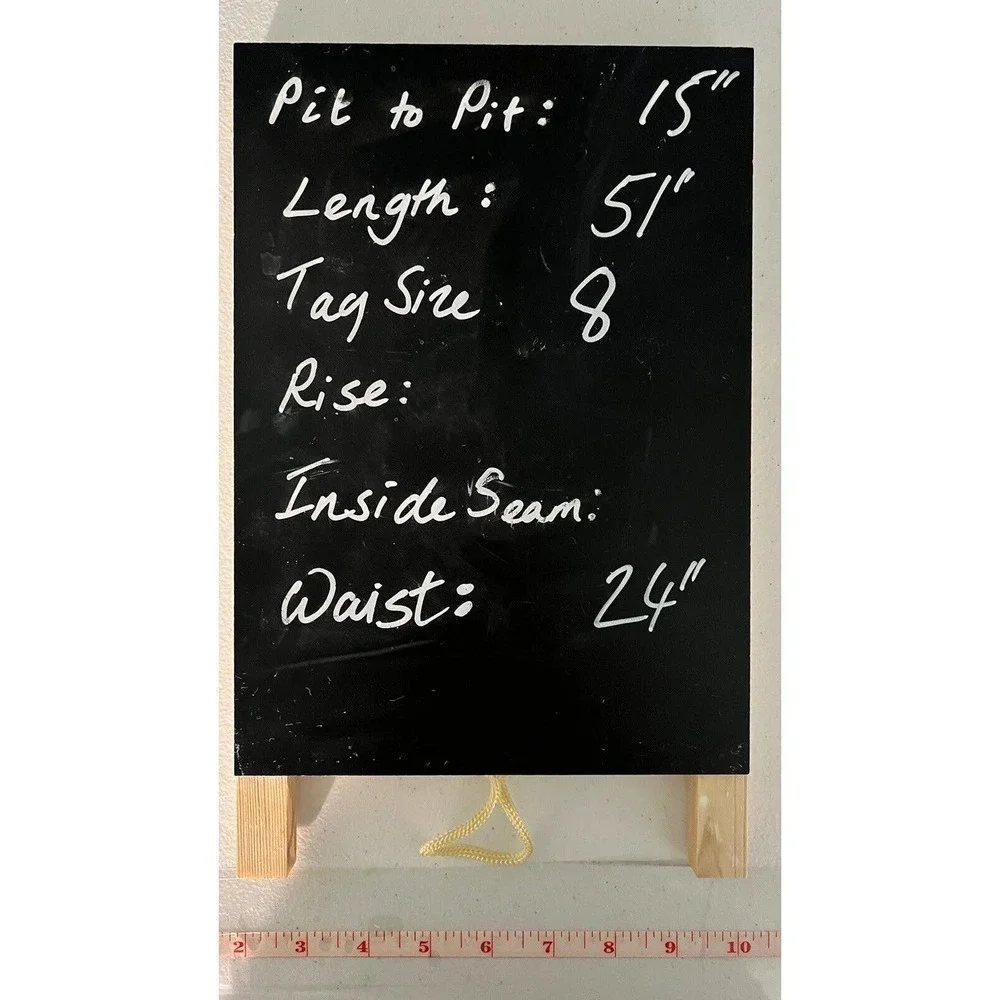 Pit to Pit: 15"
Length: 51"
Tag Size 8
Rise:
Inside Seam:
Waist: 24"
2 3 4 5 6 7 8 9 10